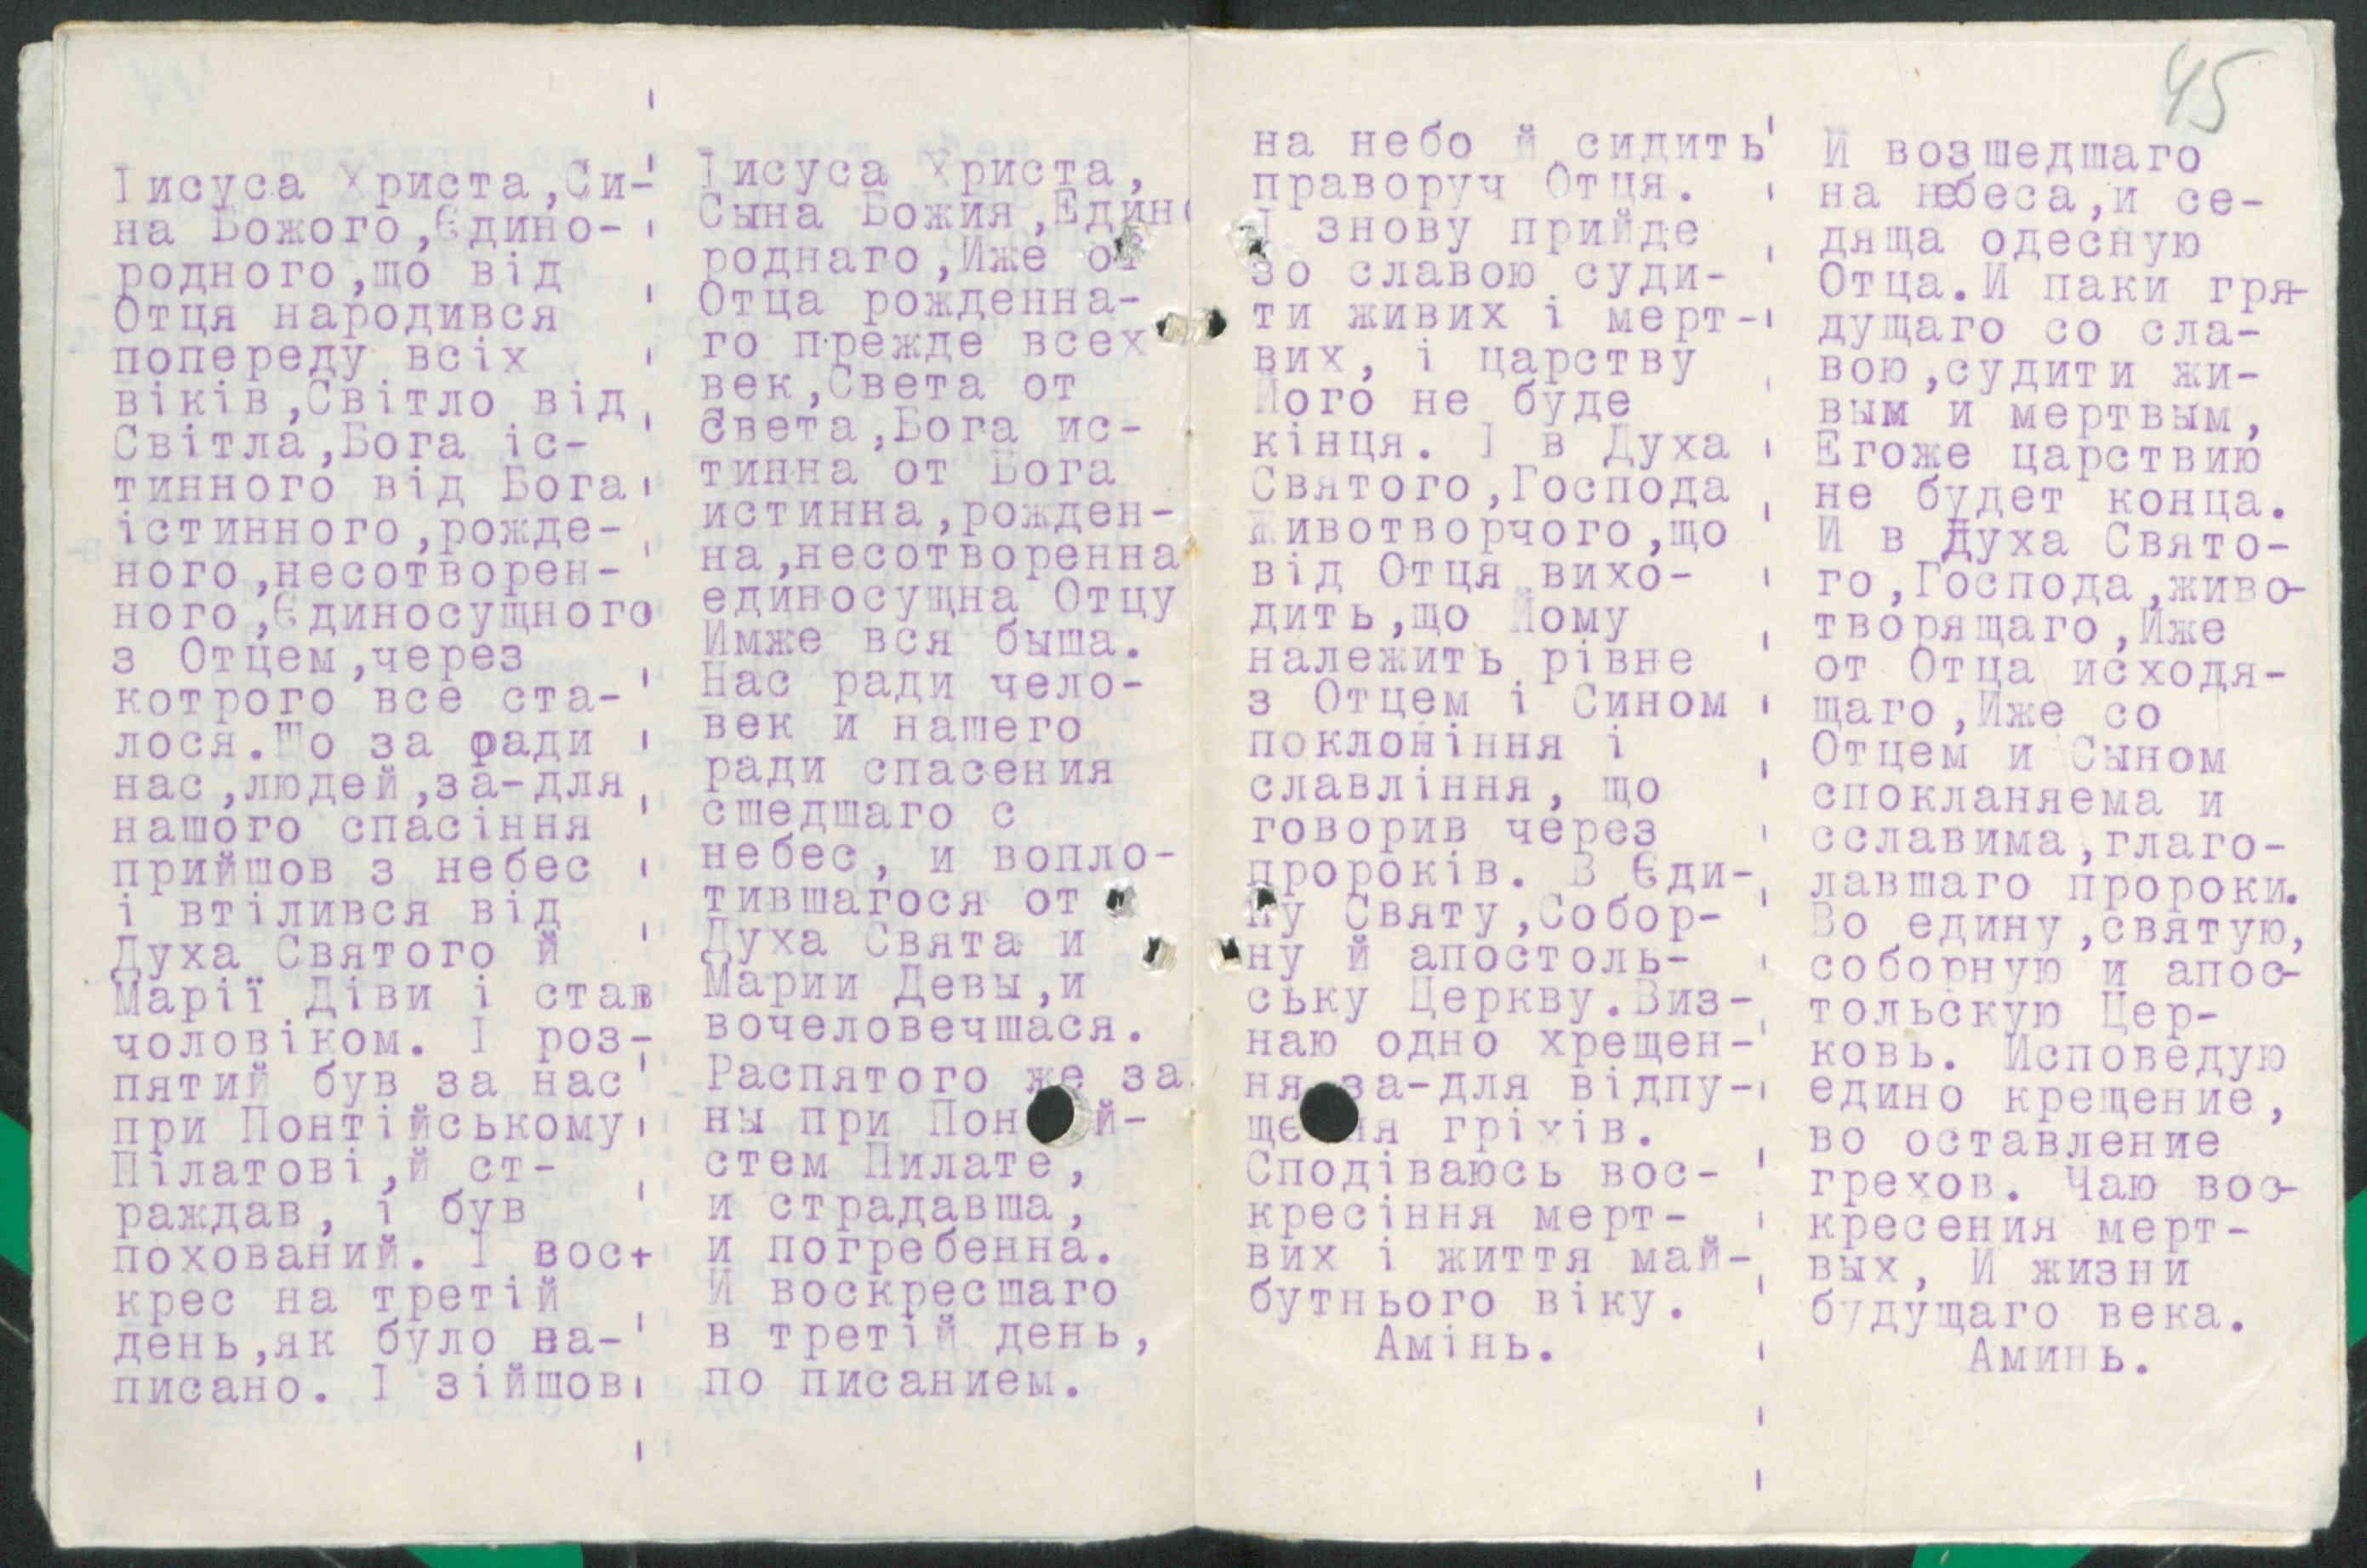 Іисуса Христа,Си-
на Божого,Єдино-
родного,що від
Отця народився
попереду всіх
віків,Світло від
Світла,Бога іс-
тинного від Бога
істинного,рожде-
ного,несотворен-
ного,Єдиносущного
з Отцем,через
котрого все ста-
лося.Що за ради
нас,людей,за-для
нашого спасіння
прийшов з небес
і втілився від
Духа Святого й
Марії Діви і став
чоловіком. І роз-
пятий був за нас
при Понтійському
Пілатові,й ст-
раждав, і був
похований. І вос+
крес на третій
день,як було на-
писано. І зійшов
Іисуса Христа,
Сына Божия,Едино
роднаго,Иже от
Отца рожденна-
го прежде всех
век,Света от
Света,Бога ис-
тинна от Бога
истинна,рожден-
на,несотворенна
единосущна Отцу
Имже вся быша.
Нас ради чело-
век и нашего
ради спасения
сшедшаго с
небес, и вопло-
тившагося от
Духа Свята и
Марии Девы,и
вочеловечшася.
Распятого же за
ны при Пон й-
стем Пилате,
и страдавша,
и погребенна.
И воскресшаго
в третій день,
по писанием.
45
на небо й сидить
праворуч Отця.
І знову прийде
зо славою суди-
ти живих і мерт-
вих, і царству
Його не буде
кінця. І в Духа
Святого,Господа
Животворчого,що
від Отця вихо-
дить,що Йому
належить рівне
з Отцем і Сином
поклоніння і
славління, що
говорив через
пророків. В Єди-
ну Святу,Собор-
ну й апостоль-
ську Церкву.Виз-
наю одно хрещен-
ня за-для відпу-
щення гріхів.
Сподіваюсь вос-
кресіння мерт-
вих і життя май-
бутнього віку.
Амінь.
И возшедшаго
на небеса,и се-
дяща одесную
Отца.И паки гря-
дущаго со сла-
вою,судити жи-
вым и мертвым,
Егоже царствию
не будет конца.
И в Духа Свято-
го,Господа,живо-
творящаго,Иже
от Отца исходя-
щаго,Иже со
Отцем и Сыном
спокланяема и
сславима,глаго-
лавшаго пророки.
Во едину,святую,
соборную и апос-
тольскую Цер-
ковь. Исповедую
едино крещение,
во оставление
грехов. Чаю вос-
кресения мерт-
вых, И жизни
будущаго века.
Аминь.